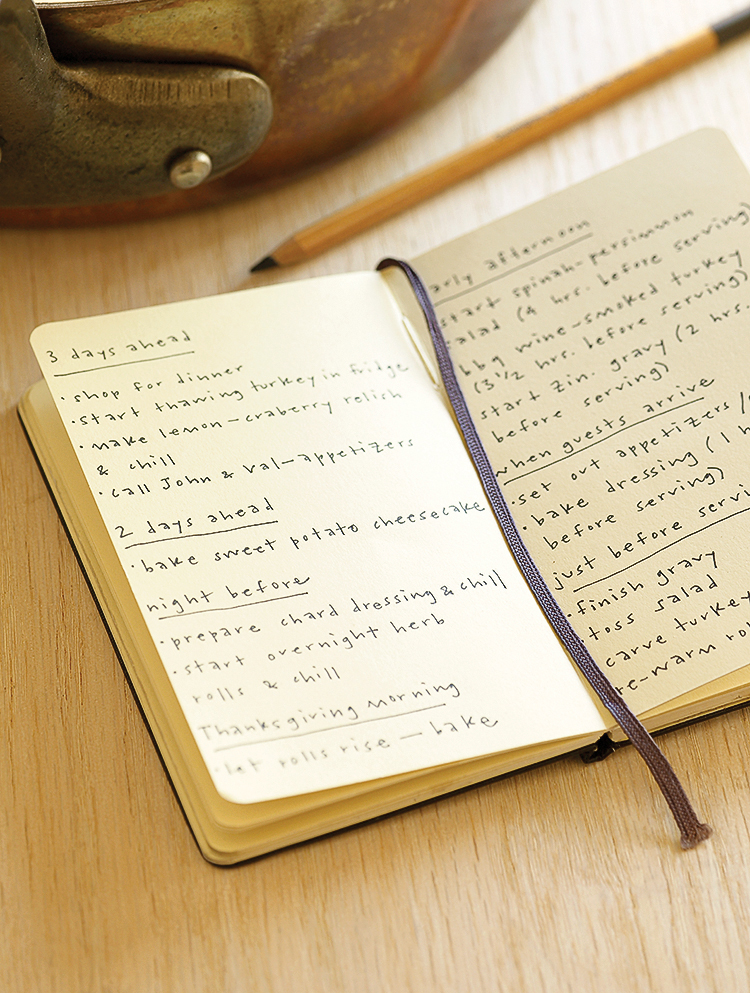 3 days ahead
· shop for dinner
· start thawing turkey in fridge
· make lemon-craberry relish
& chill
· call John & val-appetizers
2 days ahead
· bake sweet potato cheesecake
night before
· prepare chard dressing & chill
· start overnight herb
rolls & chill
Thanksgiving morning
· let rolls rise — bake
arly afternoon
start spinah-persimmon
alad (4 hrs. before serving)
bbq wine-smoked turkey
(3 1/2 hrs. before serving)
start zin. gravy (2 hrs.
before serving)
when guests arrive
· set out appetizers /
· bake dressing (1 h
before serving)
just before servi
· finish gravy
· toss salad
carve turkey
re-warm rol